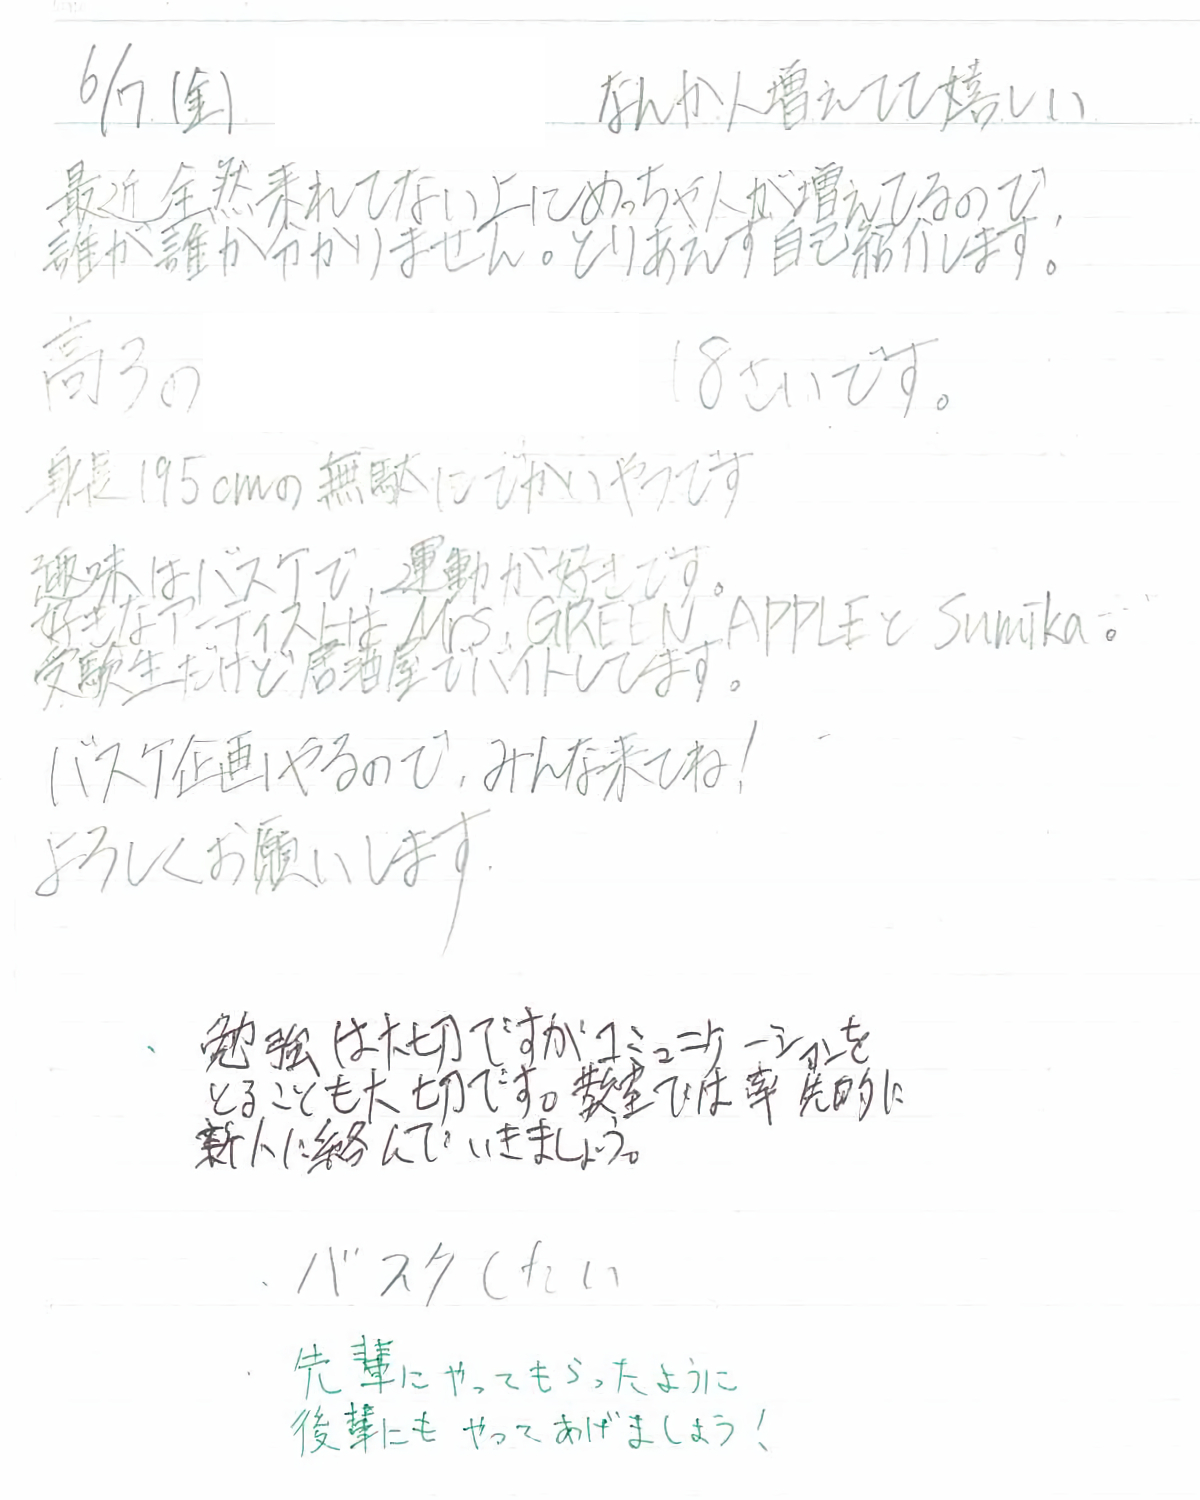 6/7(金)
なんか人増えてて嬉しい
最近全然来れてない上にめっちゃ人が増えてるので、
誰が誰か分かりません。とりあえず自己紹介します!
高3の
18さいです。
身長195cmの無駄にでかいやつです
趣味はバスケで、運動が好きです。
好きなアーティストは Mrs. GREEN APPLEと Sumika。
受験生だけど居酒屋でバイトしてます。
バスケ企画やるので、みんな来てね!
よろしくお願いします.
・勉強は大切ですがコミュニケーションを
とることも大切です。教室では率先的に
新人に絡んでいきましょう。
・バスケしたい
・先輩にやってもらったように
後輩にもやってあげましょう!